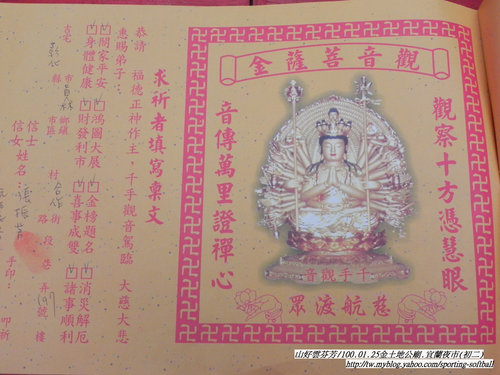 觀音菩薩金
觀察十方憑慧眼
音傳萬里證禪心
千手觀音
慈航渡眾
求祈者填寫稟文
恭請 福德正神作主，千手觀音駕臨 大慈大悲
惠賜弟子…
闔家平安 鴻圖大展 金榜題名 消災解厄
身體健康 財發利市 喜事成雙 諸事順利
宅 縣 市 鄉鎮 市區 村 街 路 段 巷 弄 號 樓
信士 信女 姓名
手印： 叩祈
山好雲芬芳/100.01.25金土地公廟.宜蘭夜市(初二)
http://tw.myblog.yahoo.com/sporting-softbal